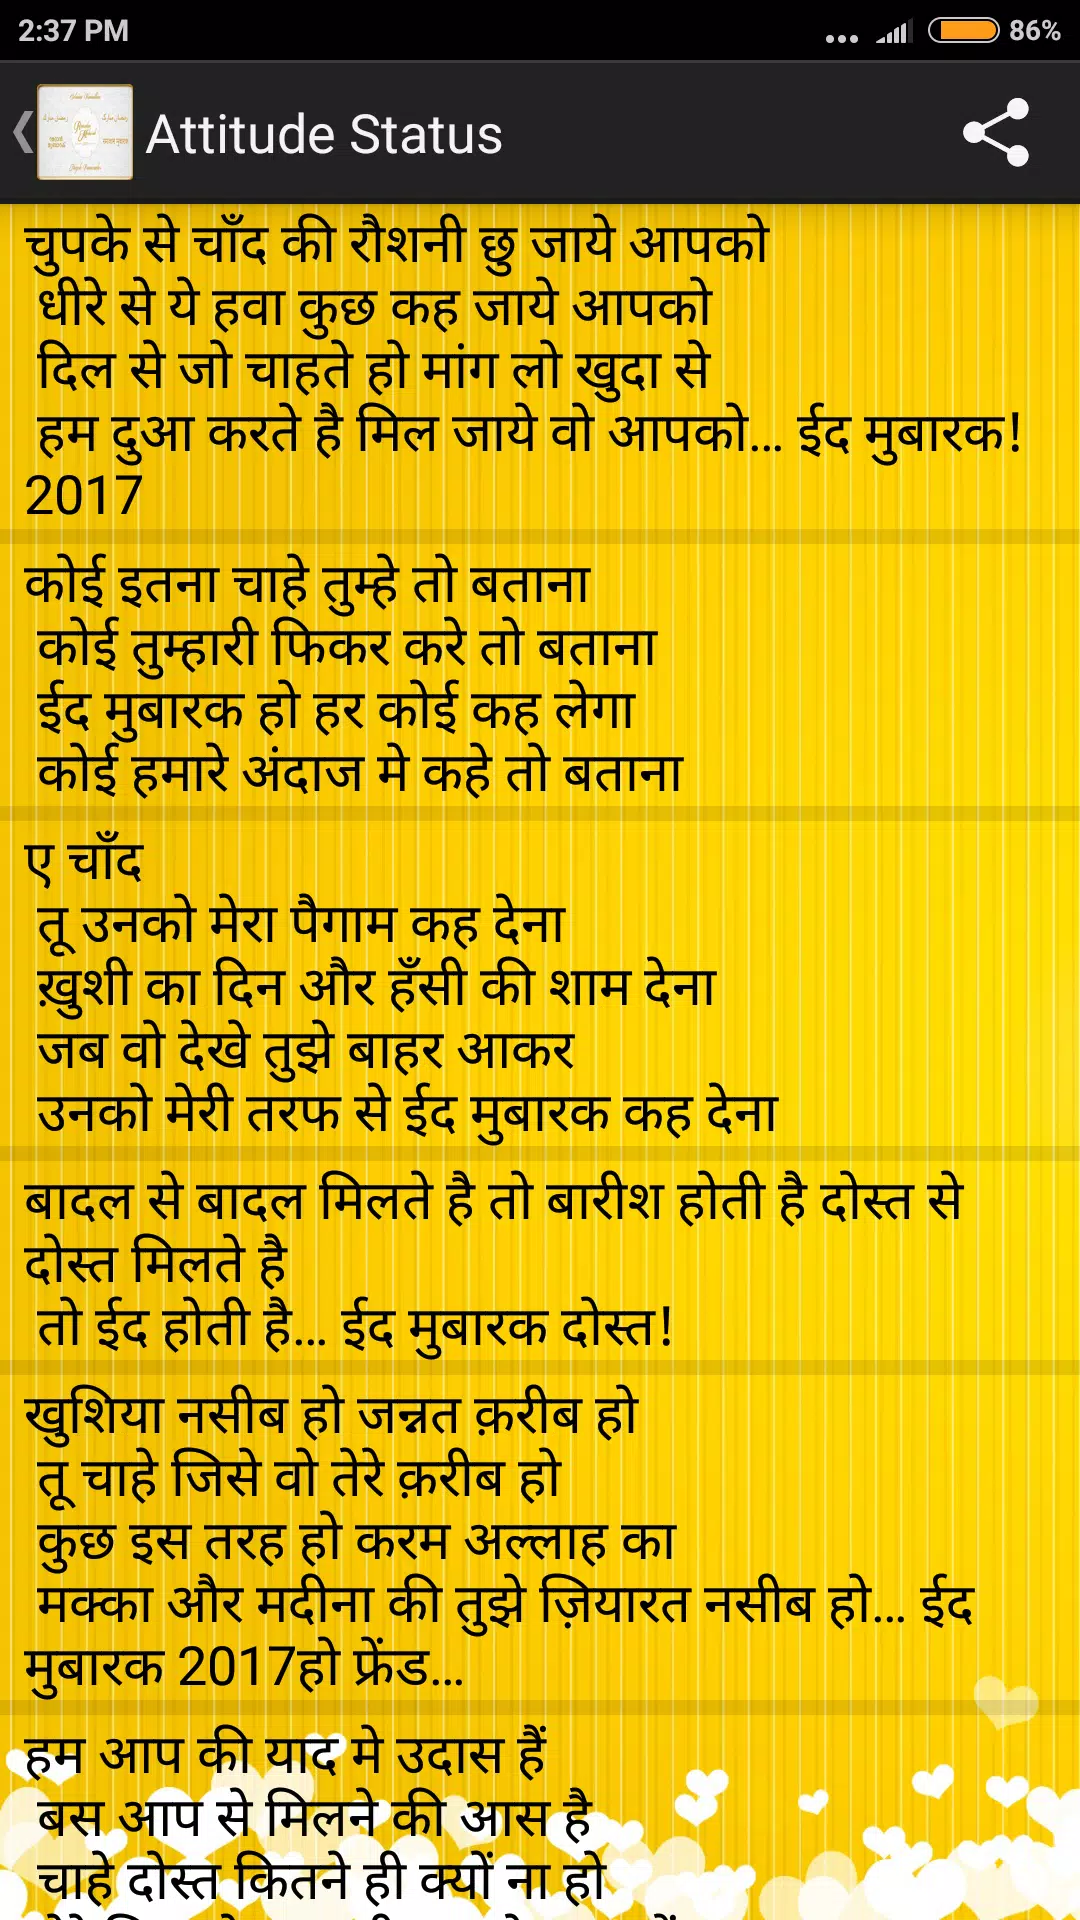 2:37 PM
86%
Attitude Status
चुपके से चाँद की रौशनी छु जाये आपको
धीरे से ये हवा कुछ कह जाये आपको
दिल से जो चाहते हो मांग लो खुदा से
हम दुआ करते है मिल जाये वो आपको... ईद मुबारक!
2017
कोई इतना चाहे तुम्हे तो बताना
कोई तुम्हारी फिकर करे तो बताना
ईद मुबारक हो हर कोई कह लेगा
कोई हमारे अंदाज मे कहे तो बताना
ए चाँद
तू उनको मेरा पैगाम कह देना
ख़ुशी का दिन और हँसी की शाम देना
जब वो देखे तुझे बाहर आकर
उनको मेरी तरफ से ईद मुबारक कह देना
बादल से बादल मिलते है तो बारीश होती है दोस्त से
दोस्त मिलते है
तो ईद होती है... ईद मुबारक दोस्त!
खुशिया नसीब हो जन्नत क़रीब हो
तू चाहे जिसे वो तेरे क़रीब हो
कुछ इस तरह हो करम अल्लाह का
मक्का और मदीना की तुझे ज़ियारत नसीब हो... ईद
मुबारक 2017हो फ्रेंड...
हम आप की याद मे उदास हैं
बस आप से मिलने की आस है
चाहे दोस्त कितने ही क्यों ना हो